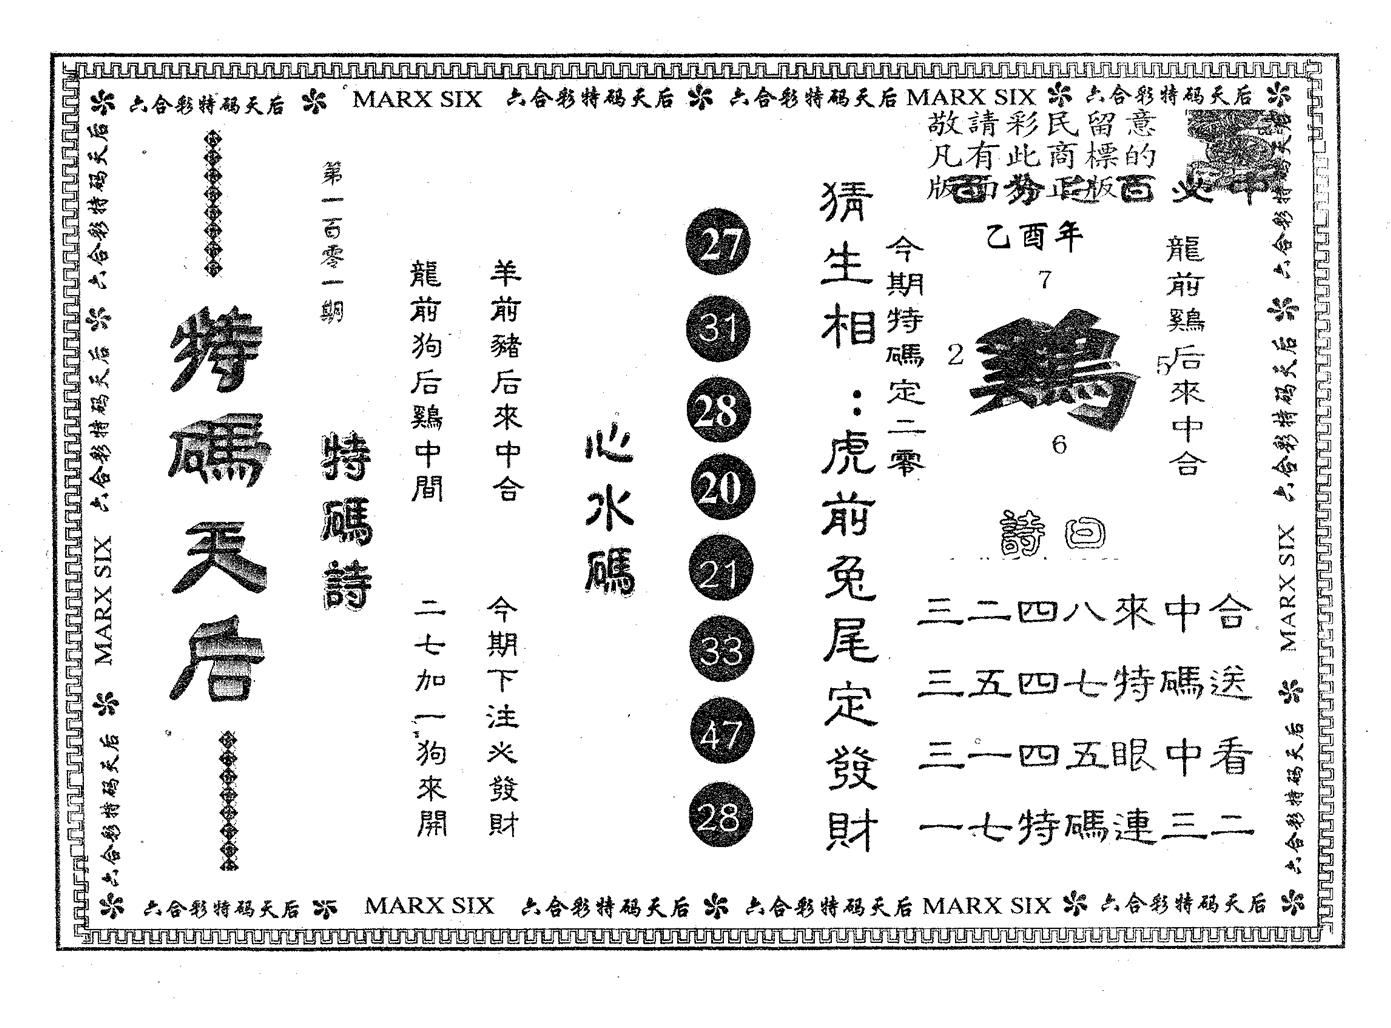 六合彩特码天后 MARX SIX 六合彩特码天后 六合彩特码天后 MARX SIX 六合彩特码天后
敬請彩民留意
凡有此商標的
版面為正版
百分之百必中
乙酉年
7
2
鷄
5
6
龍前鷄后來中合
今期特碼定二零
詩曰
三二四八來中合
三五四七特碼送
三一四五眼中看
一七特碼連三二
猜生相:虎前兔尾定發財
27
31
28
20
21
33
47
28
心水碼
羊前豬后來中合
今期下注必發財
龍前狗后鷄中間
二七加一狗來開
特碼詩
第一百零一期
特碼天后
六合彩特码天后 六合彩特码天后 MARX SIX 六合彩特码天后
六合彩特码天后 六合彩特码天后 MARX SIX 六合彩特码天后
六合彩特码天后 MARX SIX 六合彩特码天后 六合彩特码天后 MARX SIX 六合彩特码天后